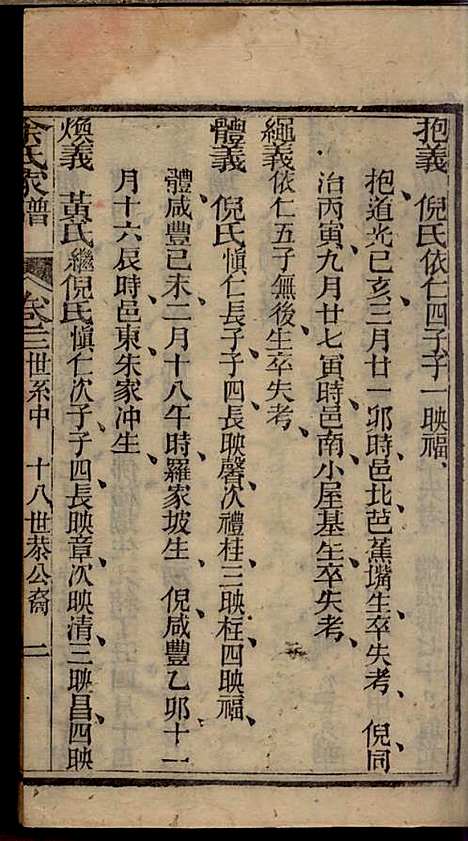 抱義　倪氏依仁四子子一映福、
抱道光已亥三月廿一卯時邑北芭蕉嘴生卒失考、倪同
治丙寅九月廿七寅時邑南小屋基生卒失考、
繩義依仁五子無後生卒失考、
體義　倪氏慎仁長子子四長映馨次禮桂三映柱四映福、
體咸豐已未二月十八午時羅家坡生　倪咸豐乙卯十一
月十六辰時邑東朱家冲生
煥義　黃氏繼倪氏慎仁次子子四長映章次映清三映昌四映
余氏家譜　卷三世系中　十八世恭公裔　二